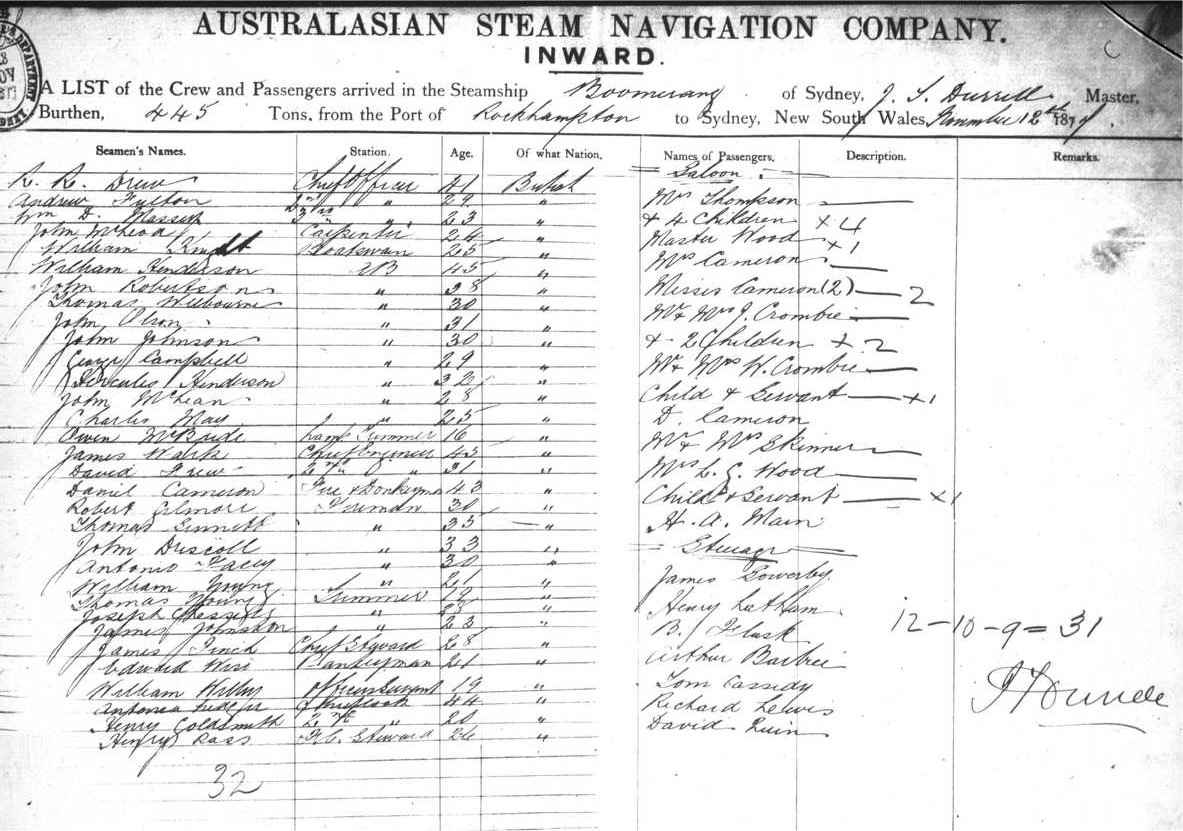 AUSTRALASIAN STEAM NAVIGATION COMPANY.
INWARD.
A LIST of the Crew and Passengers arrived in the Steamship Boomerang of Sydney, J. S. Durrell Master,
Burthen, 445 Tons, from the Port of Rockhampton to Sydney, New South Wales, 12th 187
Seamen's Names. Station. Age. Of what Nation. Names of Passengers. Description. Remarks.
Saloon
R. R. Drew Chief Officer 41 British
Andrew Fulton 2nd " 29 " Mrs Thompson
Wm D. 3rd " 23 " & 4 Children x 4
John McLeod Carpenter 24 " Master Wood x 1
William Boatswain 25 " Mrs Cameron
William Henderson AB 45 "
John Robertson " 38 " Misses Cameron (2) — 2
Thomas Welbourne " 30 "
John Olson " 31 " Mr & Mrs J. Crombie
John Johnson " 30 " & 2 Children x 2
George Campbell " 29 " Mr & Mrs W. Crombie
Hercules Henderson " 32 "
John McLean " 28 " Child & Servant — x 1
Charles May " 25 " D. Cameron
Owen McBride Lamp Trimmer 16 " Mr & Mrs Skinner
James Chief Engineer 43 "
David Drew 2nd " 31 " Mrs L. G. Wood
Daniel Cameron Fire & Donkeyman 43 " Child & Servant — x 1
Robert Gilmore Fireman 30 "
Thomas Sinnett " 35 " H. A. Main
John Driscoll " 33 " Steerage
Antonio Facey " 30 "
William Young " 21 " James Sowerby
Thomas Young Trimmer 19 "
Joseph " 28 " Henry Latham
James Johnston " 23 " B. Flask 12-10-9=31
James Finch Chief Steward 28 "
Edward Wise Pantryman 21 " Arthur
William Officers Servant 19 " Tom Cassidy
Antonio Chief Cook 44 " Richard Lewis
Henry Goldsmith 2nd " 20 " David Quin
Henry Rass F.C. Steward 26 "
32